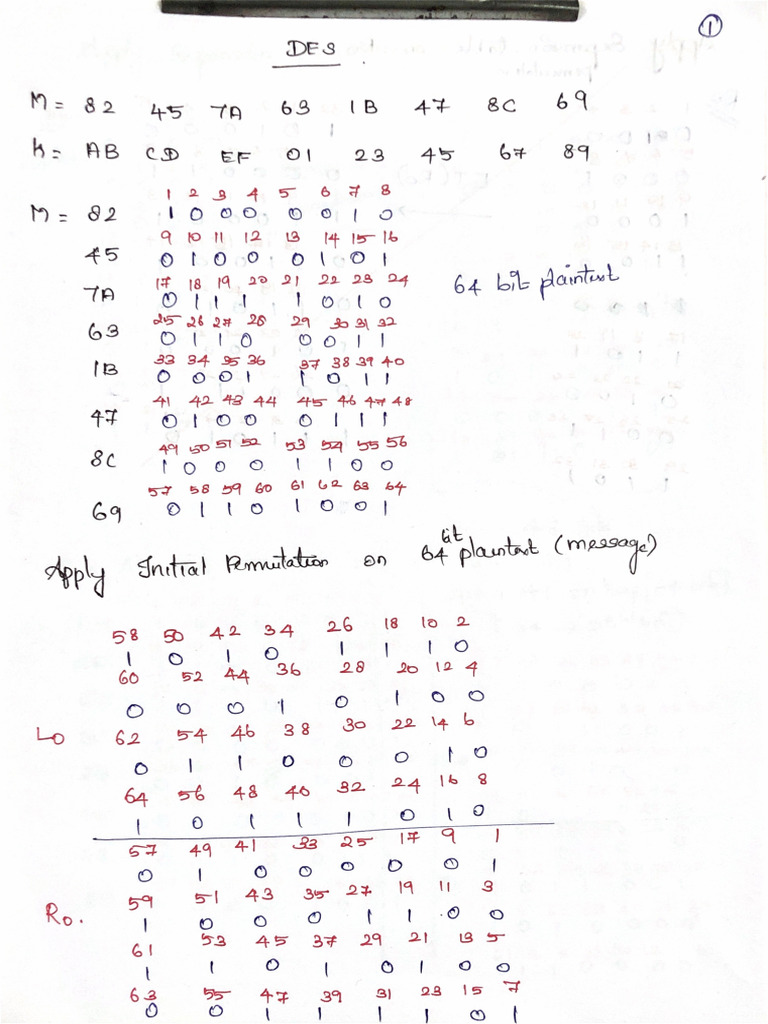 1
DES
M = 82 45 7A 63 1B 47 8C 69
K = AB CD EF 01 23 45 67 89
1 2 3 4 5 6 7 8
M = 82 1 0 0 0 0 0 1 0
9 10 11 12 13 14 15 16
45 0 1 0 0 0 1 0 1
17 18 19 20 21 22 23 24
7A 0 1 1 1 1 0 1 0
64 bit plaintext
25 26 27 28 29 30 31 32
63 0 1 1 0 0 0 1 1
33 34 35 36 37 38 39 40
1B 0 0 0 1 1 0 1 1
41 42 43 44 45 46 47 48
47 0 1 0 0 0 1 1 1
49 50 51 52 53 54 55 56
8C 1 0 0 0 1 1 0 0
57 58 59 60 61 62 63 64
69 0 1 1 0 1 0 0 1
Apply Initial Permutation on 64 bit plaintext (message)
58 50 42 34 26 18 10 2
1 0 1 0 1 1 1 0
60 52 44 36 28 20 12 4
0 0 0 1 0 1 0 0
L0 62 54 46 38 30 22 14 6
0 1 1 0 0 0 1 0
64 56 48 40 32 24 16 8
1 0 1 1 1 0 1 0
57 49 41 33 25 17 9 1
0 1 0 0 0 0 0 1
59 51 43 35 27 19 11 3
R0. 1 0 0 0 1 1 0 0
61 53 45 37 29 21 13 5
1 1 0 1 0 1 0 0
63 55 47 39 31 23 15 7
0 0 1 1 1 1 0 1